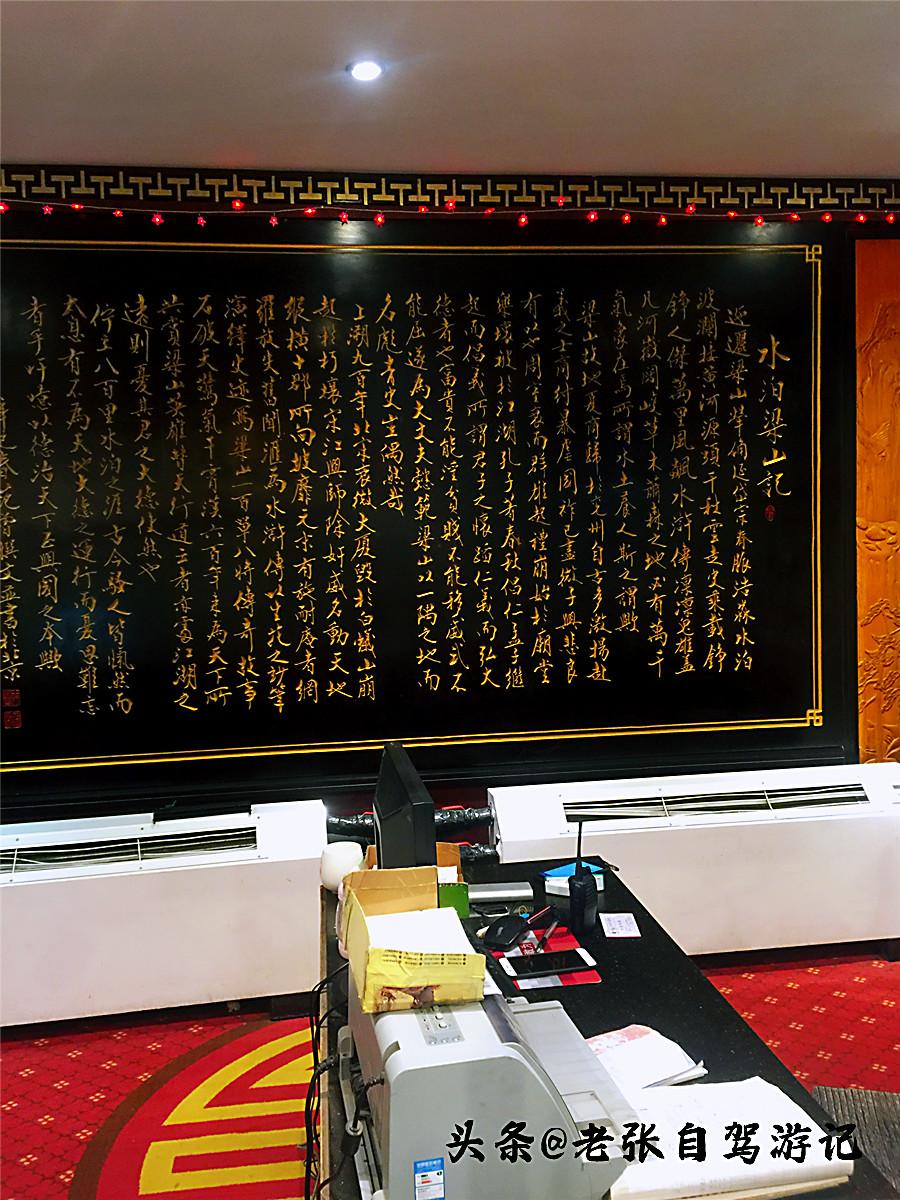 水泊梁山记
迤逦梁山华角延岱宗脊脉浩淼水泊
波澜接黄河源项千秋云走史乘载铮
铮人杰万里风飙水浒传湮夐雄画
凡河嶽闢岐草木蓊森之地必有萬千
氣象在焉所謂水土養人斯之謂歟
梁山故地夏商歸於兗州自古多激揚赴
義之士商紂暴虐國祚已盡微子興悲良
有以也周室衰而群雄起禮崩始於廟堂
樂壞被於江湖孔子著春秋倡仁孟子繼
起而倡義所謂君子之懷蹈仁義而弘大
德者也富貴不能淫貧賤不能移威武不
能屈遂為大丈夫懿範梁山以一隅之地而
名彪青史豈偶然哉
上溯九百年北宋衰微大廈毀於白蟻山崩
起於朽壤宋江興師除奸威名動天地
縱橫十郡所向披靡元末有施耐庵者網
羅放失舊聞匯為水滸傳以生花之妙筆
演繹史迹寫梁山一百單八將傳奇故事
石破天驚氣干霄漢六百年來為天下所
共賞梁山英雄替天行道王者亦當江湖之
遠則憂其君之大德使然也
佇立八百里水泊之涯古今騷人皆愾然而
太息有不為天地大德之運行而憂思難忘
者乎吁噫以德治天下正興國之本歟
撰文並書於北京
头条@老张自驾游记